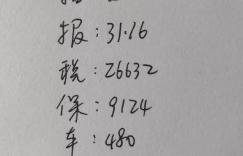 报:31.16
税:26632
保:9124
车:480